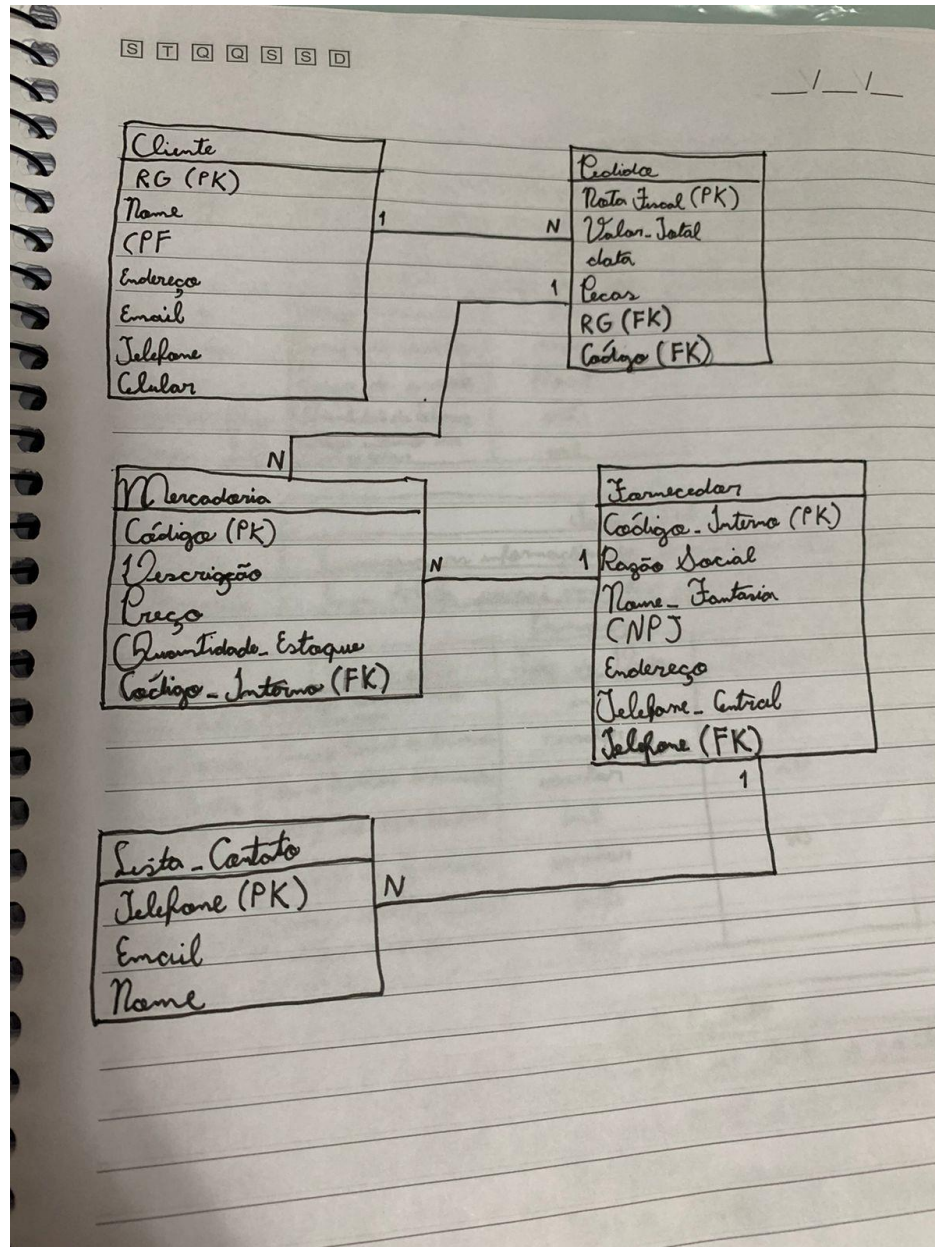 S T Q Q S S D
__/__/__
Cliente
RG (PK)
Nome
CPF
Endereço
Email
Telefone
Celular
1
N
Pedido
Nota Fiscal (PK)
Valor_Total
data
Pecas
RG (FK)
Código (FK)
1
N
Mercadoria
Código (PK)
Descrição
Preço
Quantidade_Estoque
Código_Interno (FK)
N
1
Fornecedor
Código_Interno (PK)
Razão Social
Nome_Fantasia
CNPJ
Endereço
Telefone_Central
Telefone (FK)
1
N
Lista_Contato
Telefone (PK)
Email
Nome